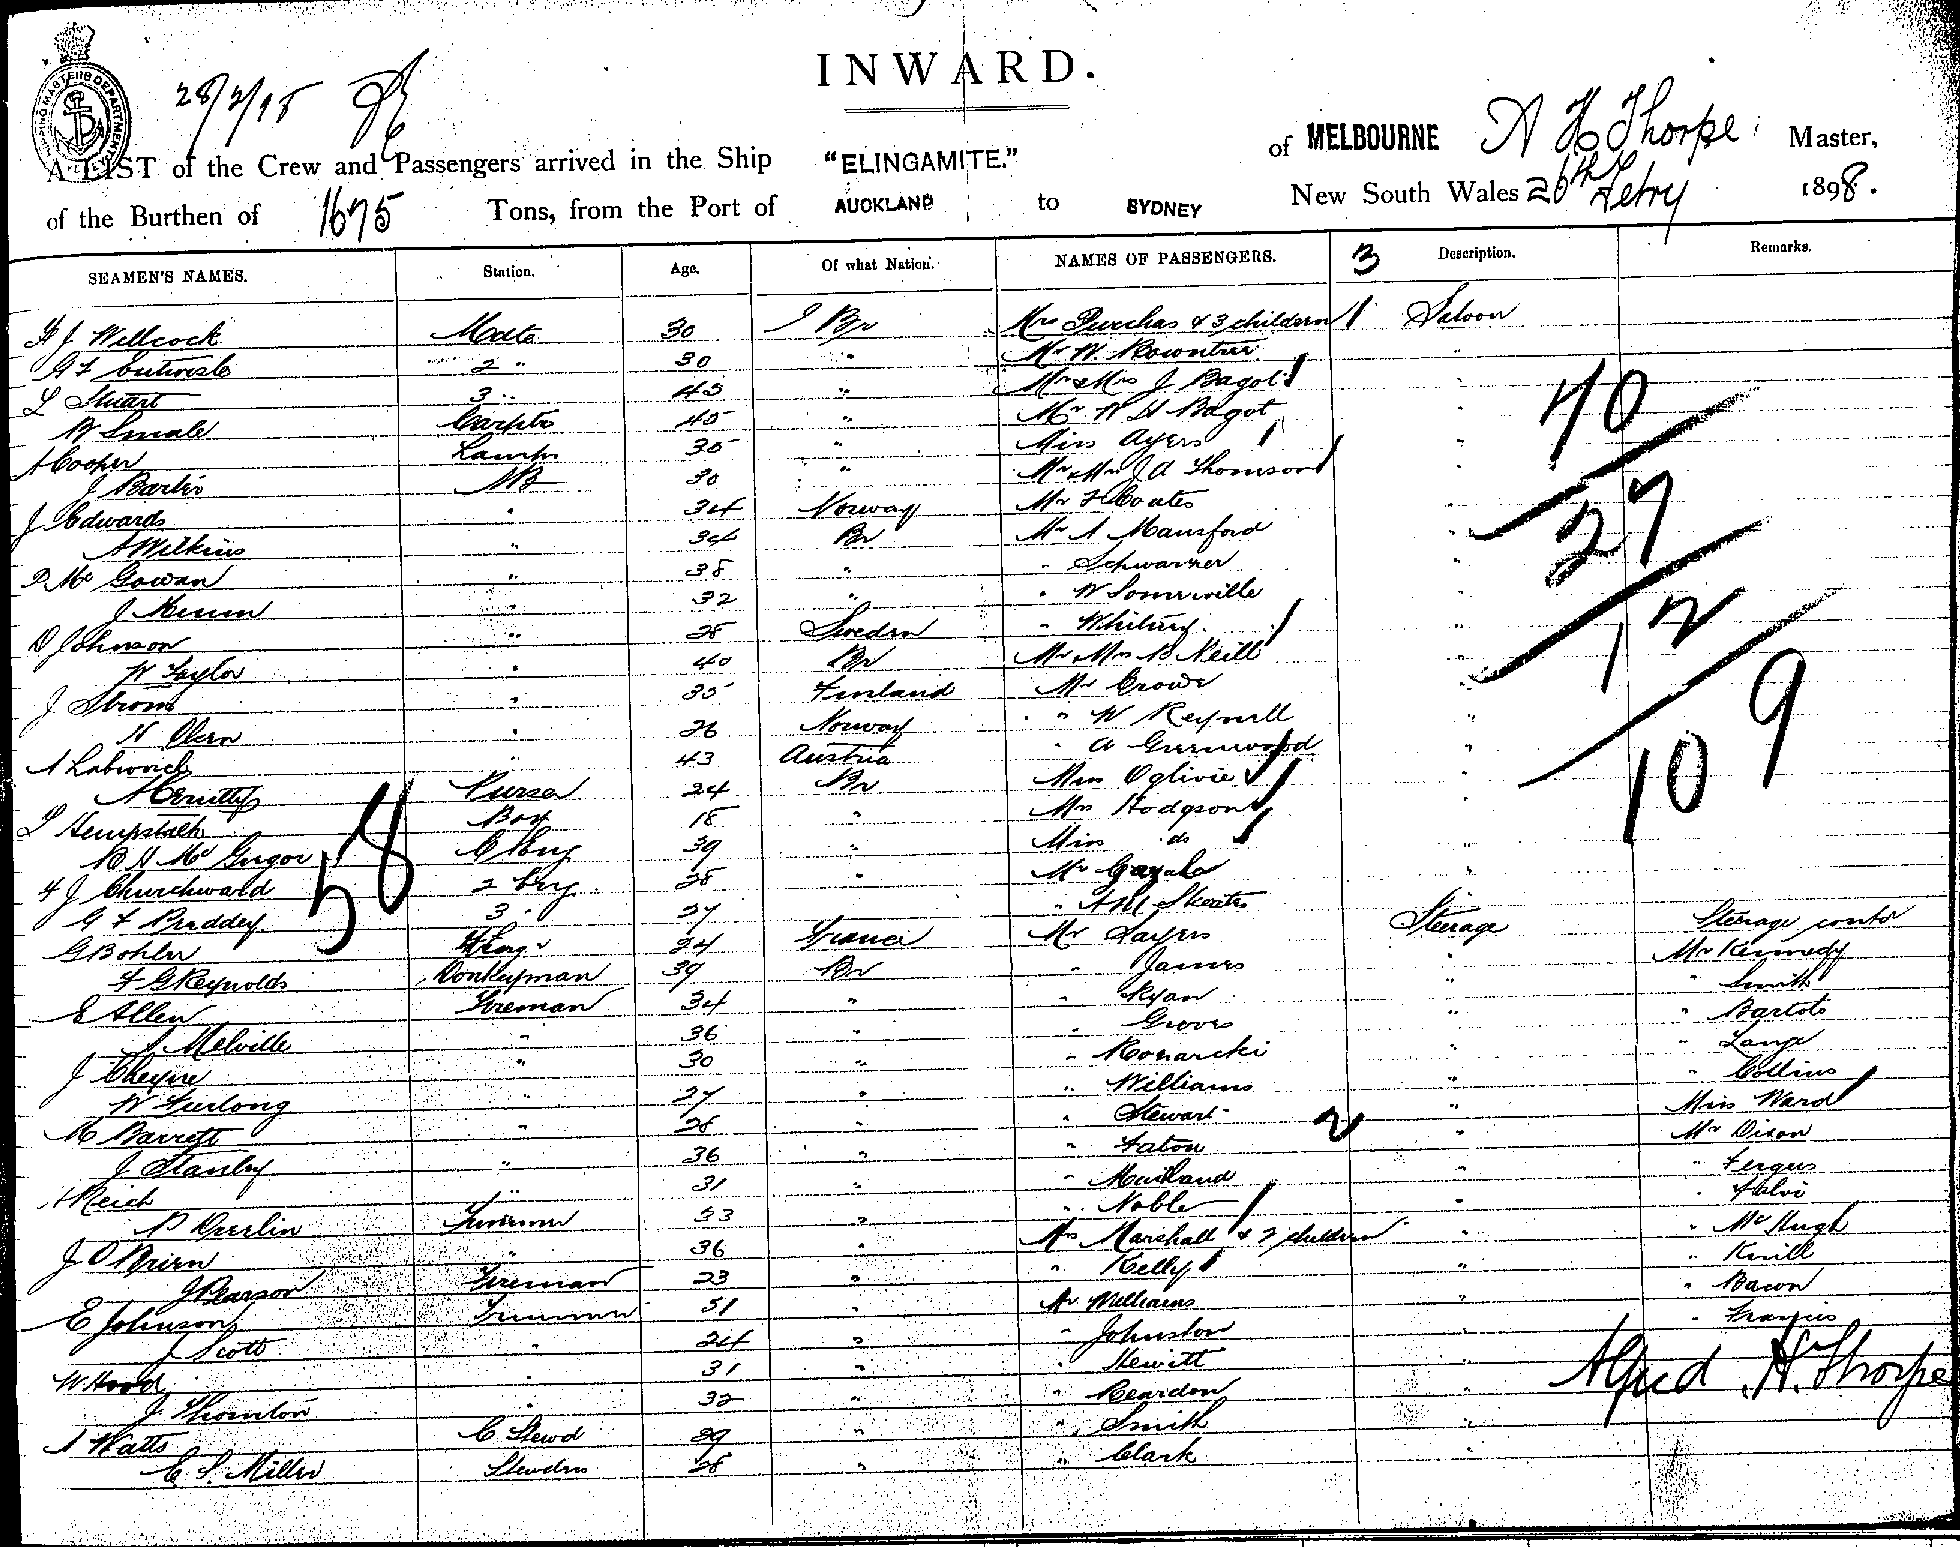 INWARD.
28/2/98
A LIST of the Crew and Passengers arrived in the Ship "ELINGAMITE." of MELBOURNE A H Thorpe Master,
of the Burthen of 1675 Tons, from the Port of AUCKLAND to SYDNEY New South Wales 26th Febry 1898.
SEAMEN'S NAMES. Station. Age. Of what Nation. NAMES OF PASSENGERS. 3 Description. Remarks.
J Willcock Mate 30 Br Mrs Purchas & 3 children Saloon
2 " 30 " Mr W. Rowntree "
L Stuart 3 " 45 " Mr & Mrs J Bagot "
W Smale Carptr 45 " Mr W H Bagot "
A Cooper Lamps 35 " Miss Ayers "
J AB 30 " Mr & Mrs J A Thomson "
J Edwards " 34 Norway Mr F Coates
A Wilkins " 34 Br Mr A Mansford "
P Mc Gowan " 38 " " Schwarzer "
J " 32 " " W Somerville "
O Johnson " 28 Sweden " Whitney "
W Taylor " 40 Br Mr & Mrs B Neill "
J Strom " 35 Finland Mr Crowe "
N Olsen " 26 Norway " W Reynell "
A " 43 Austria " A Greenwood "
Purser 24 Br Miss Oglivie "
L Hempstalk Boy 18 " Mrs Hodgson "
R H Mc Gregor C Eng 39 " Miss do "
J Churchward 2 Eng 28 " Mr "
G F Praddey 3 " 27 " " Skeates
G Bohler 4 Eng 24 France Mr Sayers Steerage Steerage contd
F G Reynolds Donkeyman 39 Br " James " Mr Kennedy
E Allen Fireman 34 " " Ryan " " Smith
A Melville " 36 " " Groves " " Bartots
J Cheyne " 30 " " Konarski " " Lange
W Furlong " 27 " " Williams " " Collins
M Barrett " 28 " " Stewart 2 " Miss Ward
J Stanley " 36 " " Faton " Mr Dixon
A Reich " 31 " " Maitland " " Fergus
P Deerlin Trimmer 33 " " Noble "
J O'Brien " 36 " Mrs Marshall & 2 children " " Mc Hugh
J Pearson Fireman 23 " " Kelly " " Knill
E Johnson Trimmer 51 " Mr Williams " " Bacon
J Scott " 24 " " Johnston " " Francis
W Hood " 31 " " Hewitt "
J Thornton " 32 " " Reardon "
A Watts C Stewd 39 " " Smith "
C S. Miller Stewdrs 28 " " Clark "
58
40
27
12
10 9
Alfred H. Thorpe